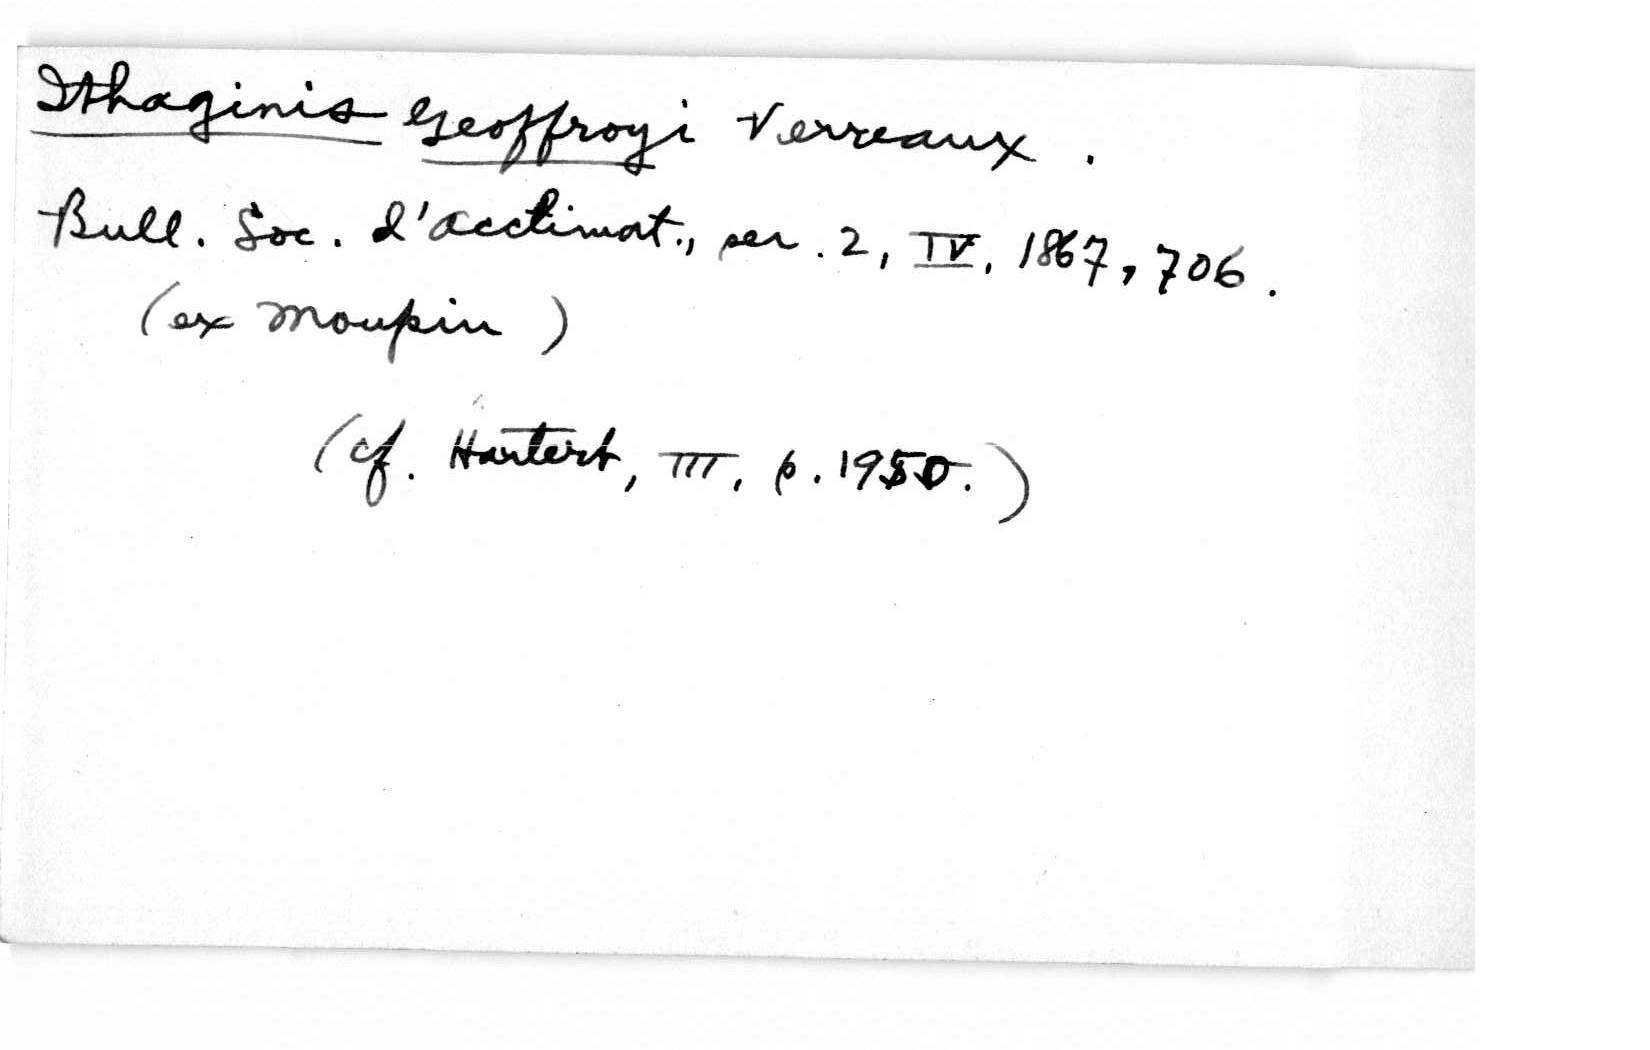 Ithaginis Geoffroyi Verreaux.
Bull. Soc. d'acclimat., ser. 2, IV, 1867, 706.
(ex Moupin)
(cf. Hartert, III, p. 1950.)